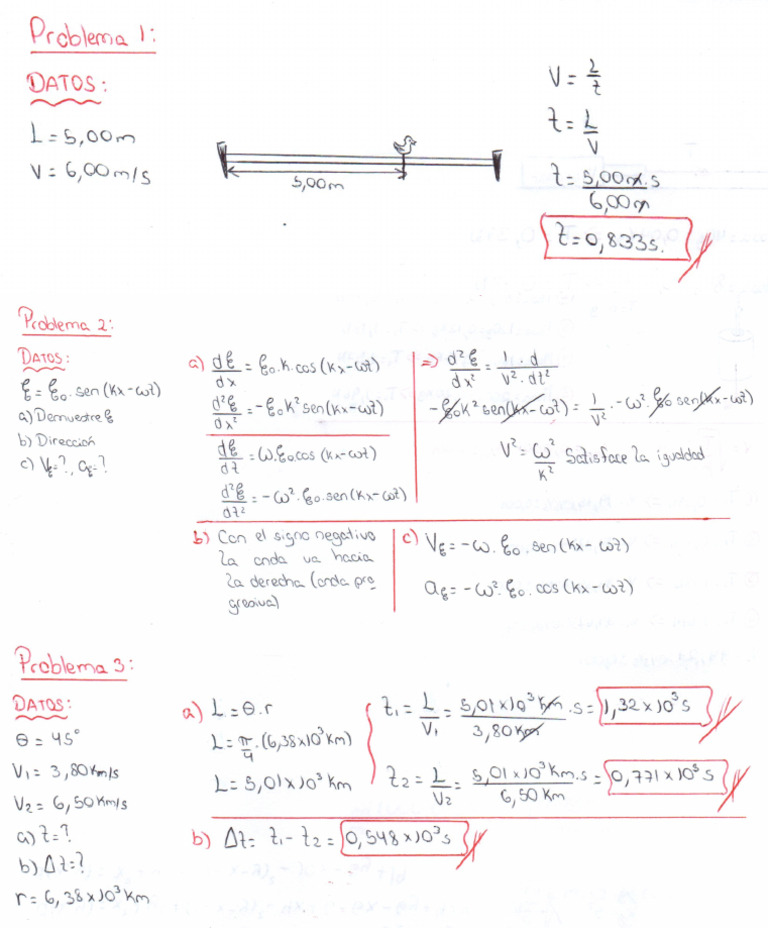 Problema 1:
DATOS:
L = 5,00m
V = 6,00m/s
5,00m
V = L/t
t = L/V
t = 5,00m.s/6,00m
t = 0,833s.
Problema 2:
DATOS:
ξ = ξo.sen(kx-ωt)
a) Demuestre ξ
b) Dirección
c) Vξ=?, aξ=?
a) dξ/dx = ξo.k.cos(kx-ωt)
d²ξ/dx² = -ξok²sen(kx-ωt)
dξ/dt = ω.ξo.cos(kx-ωt)
d²ξ/dt² = -ω².ξo.sen(kx-ωt)
=> d²ξ/dx² = d/V².dt²
-ξok²sen(kx-ωt) = 1/V².-ω².ξo sen(kx-ωt)
V² = ω²/k² Satisface la igualdad
b) Con el signo negativo
la onda va hacia
la derecha (onda pro
gresiva)
c) Vξ = -ω.ξo.sen(kx-ωt)
aξ = -ω².ξo.cos(kx-ωt)
Problema 3:
DATOS:
θ = 45°
V1 = 3,80Km/s
V2 = 6,50Km/s
a) t=?
b) Δt=?
r = 6,38x10³Km
a) L = θ.r
L = π/4.(6,38x10³Km)
L = 5,01x10³Km
t1 = L/V1 = 5,01x10³Km/3,80Km.s = 1,32x10³s
t2 = L/V2 = 5,01x10³Km.s/6,50Km = 0,771x10³s
b) Δt = t1-t2 = 0,548x10³s